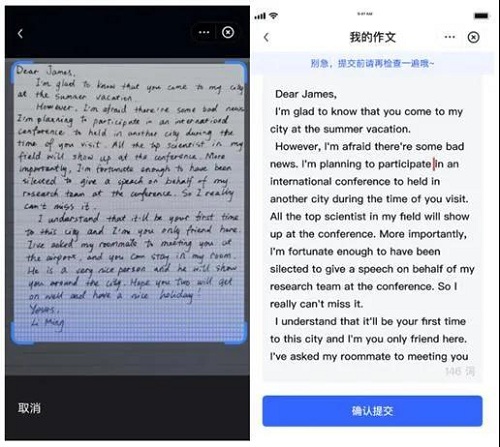 Dear James,
I'm glad to know that you come to my city
at the summer vacation.
However, I'm afraid there're some bad news.
I'm planning to participate in an international
conference to held in another city during the
time of you visit. All the top scientist in my
field will show up at the conference. More
importantly, I'm fortunate enough to have been
silected to give a speech on behalf of my
research team at the conference. So I really
can't miss it.
I understand that it'll be your first time
to this city and I'm you only friend here.
I've asked my roommate to meeting you at
the airport, and you can stay in my room.
He is a very nice person and he will show
you around the city. Hope you two will get
on well and have a nice holiday!
Yours,
Li Ming
取消
9:41 AM
我的作文
别急，提交前请再检查一遍哦~
Dear James,
I'm glad to know that you come to my
city at the summer vacation.
However, I'm afraid there're some bad
news. I'm planning to participate in an
international conference to held in
another city during the time of you visit.
All the top scientist in my field will show
up at the conference. More importantly,
I'm fortunate enough to have been
silected to give a speech on behalf of my
research team at the conference. So I
really can't miss it.
I understand that it'll be your first time
to this city and I'm you only friend here.
I've asked my roommate to meeting you
146 词
确认提交